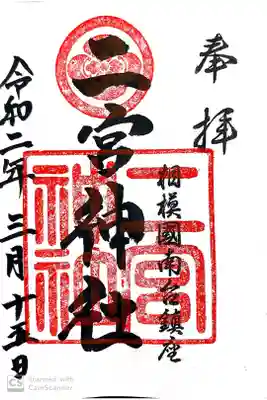 奉拝
相模國南台鎮座
二宮神社
令和二年三月十五日
二宮神社
CS Scanned with
CamScanner